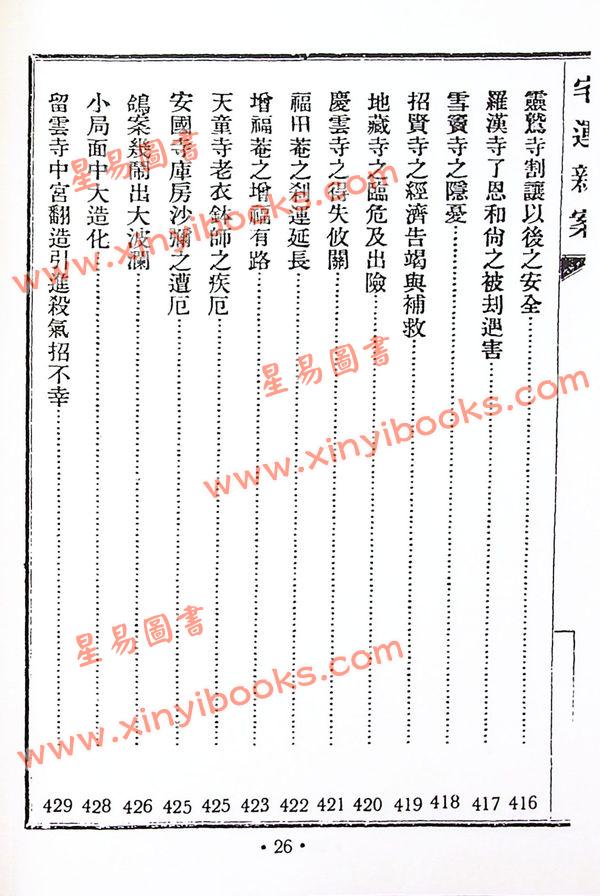 宅運新案
靈鷲寺割讓以後之安全……416
羅漢寺了恩和尚之被刦遇害……417
雪竇寺之隱憂……418
招賢寺之經濟告竭與補救……419
地藏寺之臨危及出險……420
慶雲寺之得失攸關……421
福田菴之刹運延長……422
增福菴之增福有路……423
天童寺老衣鉢師之疾厄……425
安國寺庫房沙彌之遭厄……425
鴿案幾鬧出大波瀾……426
小局面中大造化……428
留雲寺中宮翻造引進殺氣招不幸……429
·26·
星易圖書
www.xinyibooks.com
星易圖書
www.xinyibooks.com
星易圖書
www.xinyibooks.com